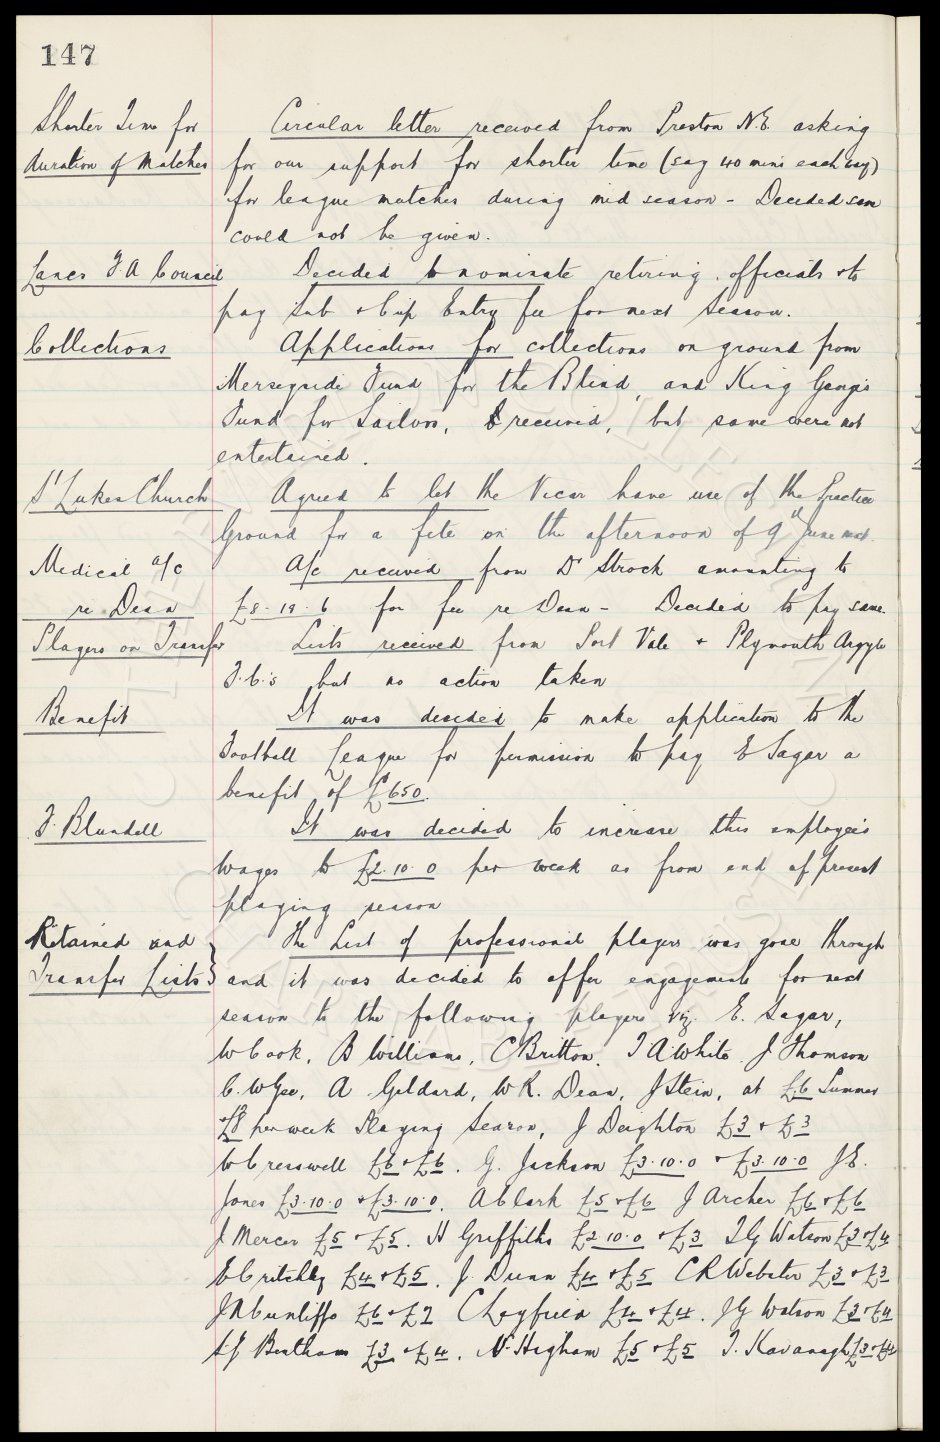 147
Shorter Time for Circular letter received from Preston N.E. asking
duration of Matches for our support for shorter time (say 40 mins each way)
for league matches during mid season - Decided same
could not be given.
Lancs F A Council Decided to nominate retiring officials & to
pay Sub & Cup Entry fee for next Season.
Collections Applications for collections on ground from
Merseyside Fund for the Blind, and King George's
Fund for Sailors, received, but same were not
entertained.
St Lukes Church Agreed to let the Vicar have use of the Practice
Ground for a fete on the afternoon of 9th June next.
Medical a/c A/c received from Dr Strock amounting to
re Dean £8-19-6 for fee re Dean - Decided to pay same.
Players on Transfer Lists received from Port Vale & Plymouth Argyle
F.C.'s but no action taken
Benefit It was decided to make application to the
Football League for permission to pay E Sagar a
benefit of £650.
F. Blundell It was decided to increase this employee's
wages to £2.10.0 per week as from end of present
playing season
Retained and The List of professional players was gone through
Transfer Lists} and it was decided to offer engagements for next
season to the following players viz. E. Sagar,
W Cook, B Williams, C Britton, T A White J Thomson
C.W Gee, A Geldard, W R. Dean, J Stein, at £6 Summer
& £8 per week Playing Season, J Deighton £3 & £3
W Cresswell £6 & £6. G. Jackson £3.10.0 & £3.10.0 J E.
Jones £3.10.0 & £3.10.0. A Clark £5 & £6 J Archer £6 & £6
J Mercer £5 & £5. H Griffiths £2.10.0 & £3 T G Watson £3 & £4
E Critchley £4 & £5. J. Dunn £4 & £5 C R Webster £3 & £3
J N Cunliffe £6 & £7 C Leyfield £4 & £4. J G Watson £3 & £4
S J Bentham £3 & £4. N. Higham £5 & £5 T. Kavanagh £3 & £4